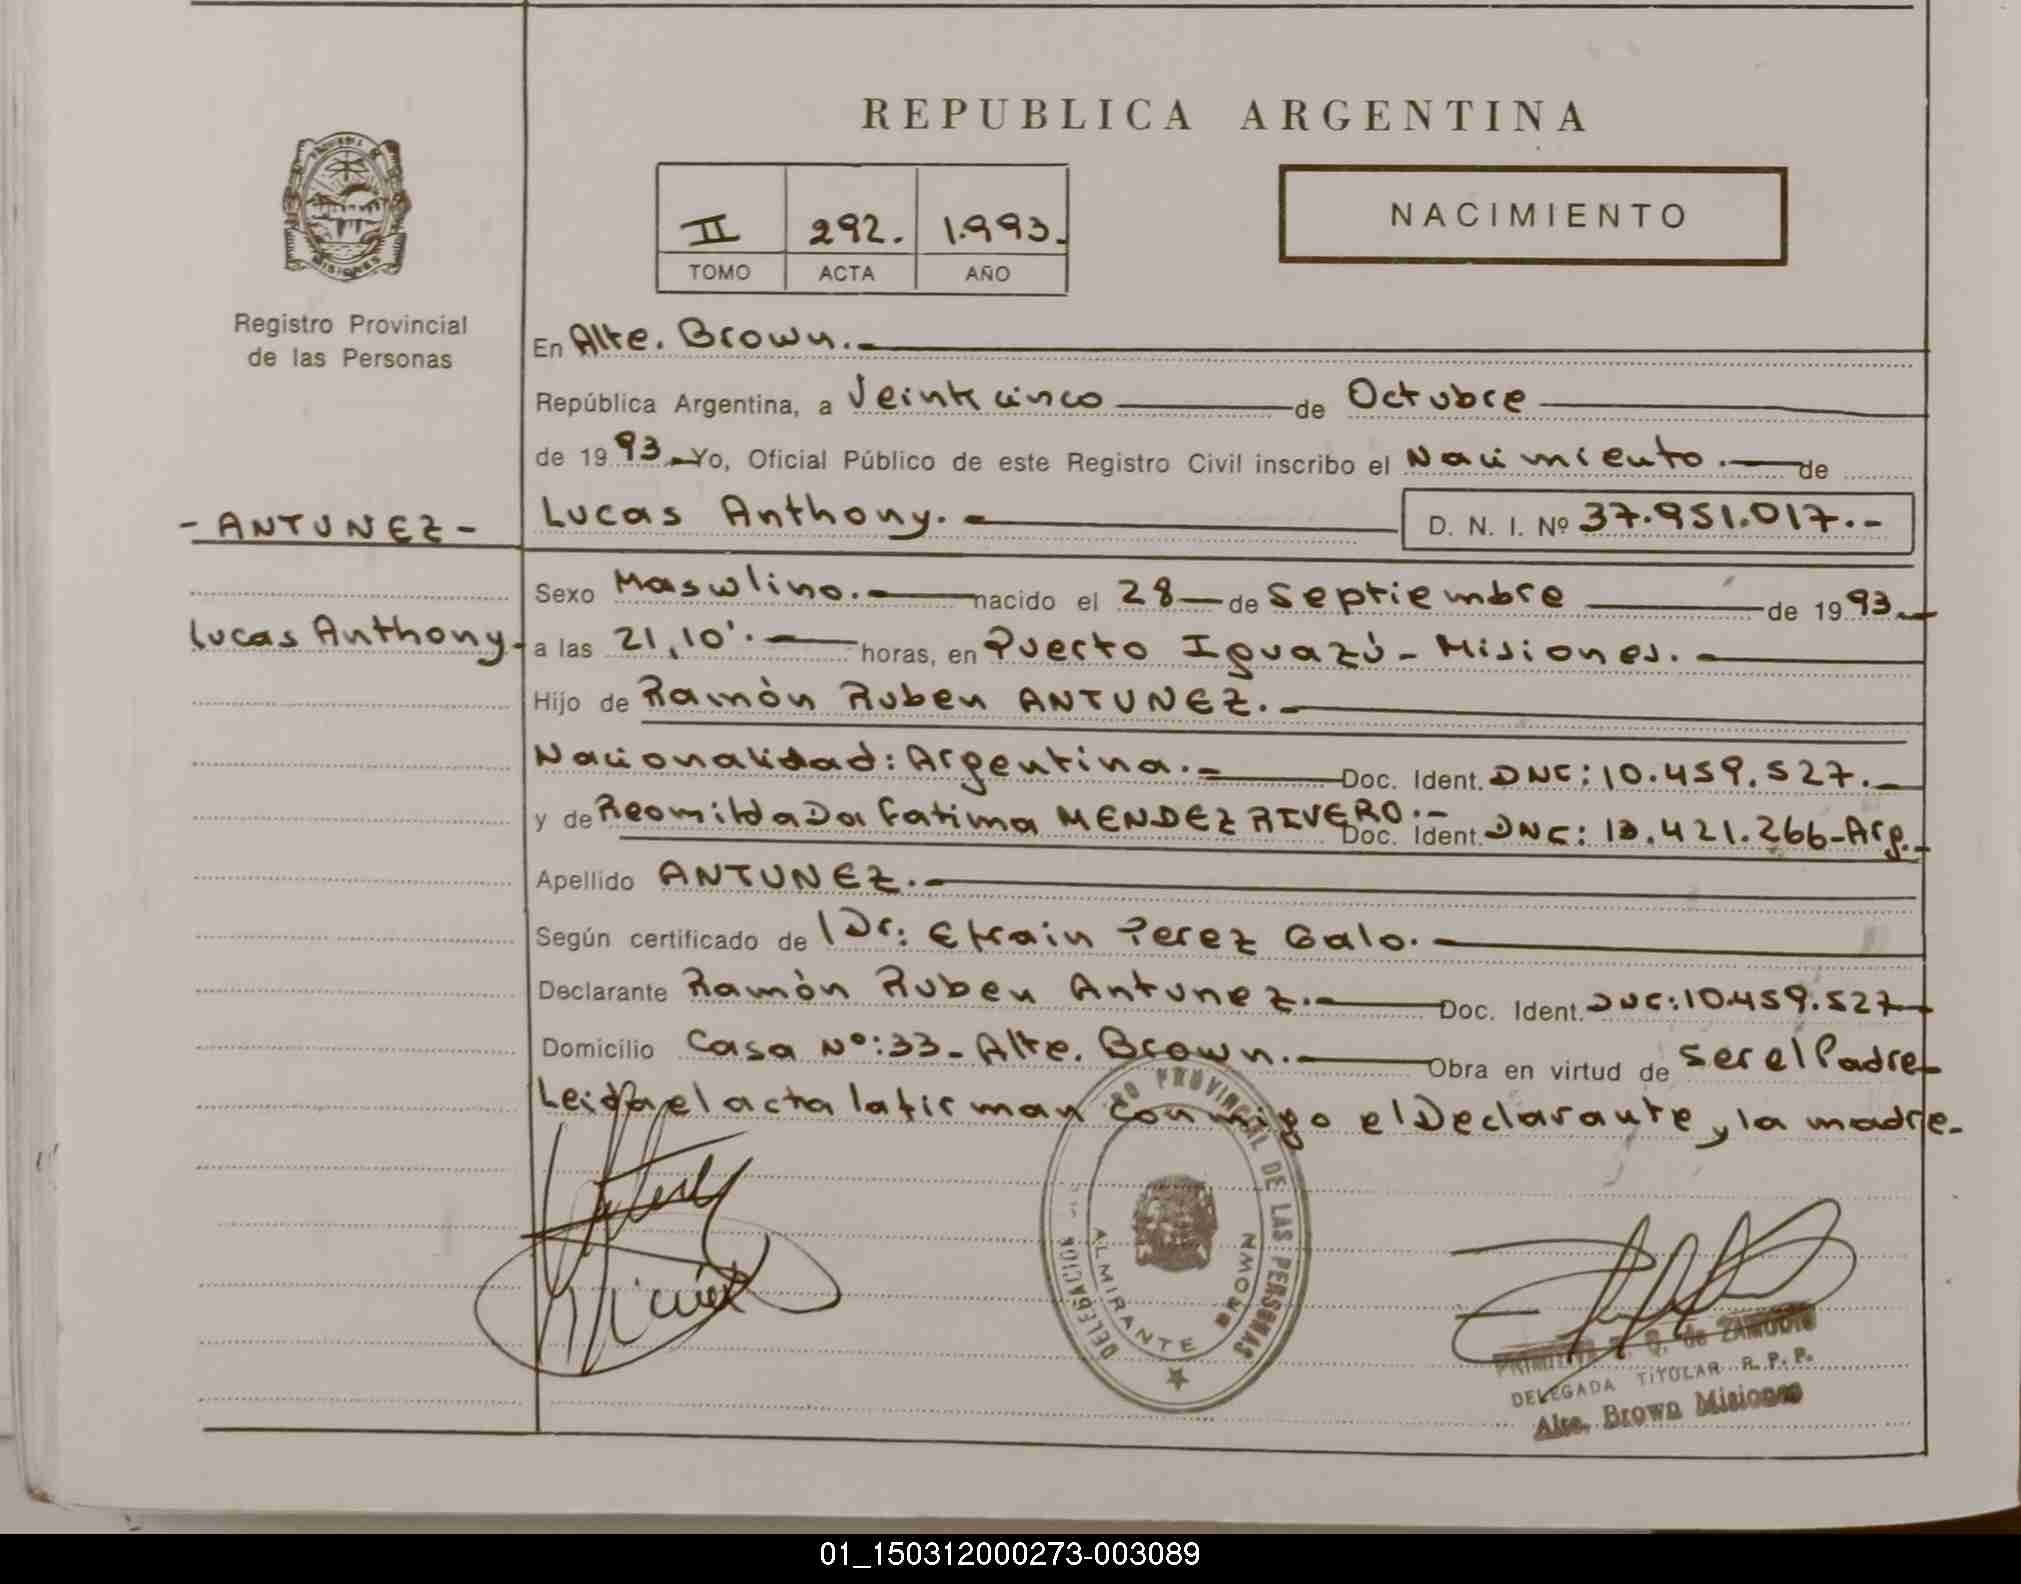 REPUBLICA ARGENTINA
MISIONES
Registro Provincial
de las Personas
II 292. 1.993.
TOMO ACTA AÑO
NACIMIENTO
En Alte. Brown.
República Argentina, a Veinticinco de Octubre
de 1993 Yo, Oficial Público de este Registro Civil inscribo el Nacimiento. de
- ANTUNEZ -
Lucas Anthony. D. N. I. Nº 37.951.017.-
Sexo Masculino. nacido el 28 de Septiembre de 1993.
Lucas Anthony.
a las 21,10'. horas, en Puerto Iguazú - Misiones.
Hijo de Ramón Ruben ANTUNEZ.
Nacionalidad: Argentina. Doc. Ident. DNI: 10.459.527.
y de Fatima MENDEZ RIVERO.- Doc. Ident. DNI: 421.266-Arg.
Apellido ANTUNEZ.
Según certificado de Dr: Efrain Perez Galo.
Declarante Ramón Ruben Antunez. Doc. Ident. DNI: 10.459.527
Domicilio Casa Nº: 33 - Alte. Brown. Obra en virtud de ser el Padre
Leida el acta la firman conmigo el Declarante y la madre.
PROVINCIAL DE LAS PERSONAS
DELEGACION
ALMIRANTE BROWN
de ZAMUDIO
DELEGADA TITULAR R. P. P.
Alte. Brown Misiones
01_150312000273-003089